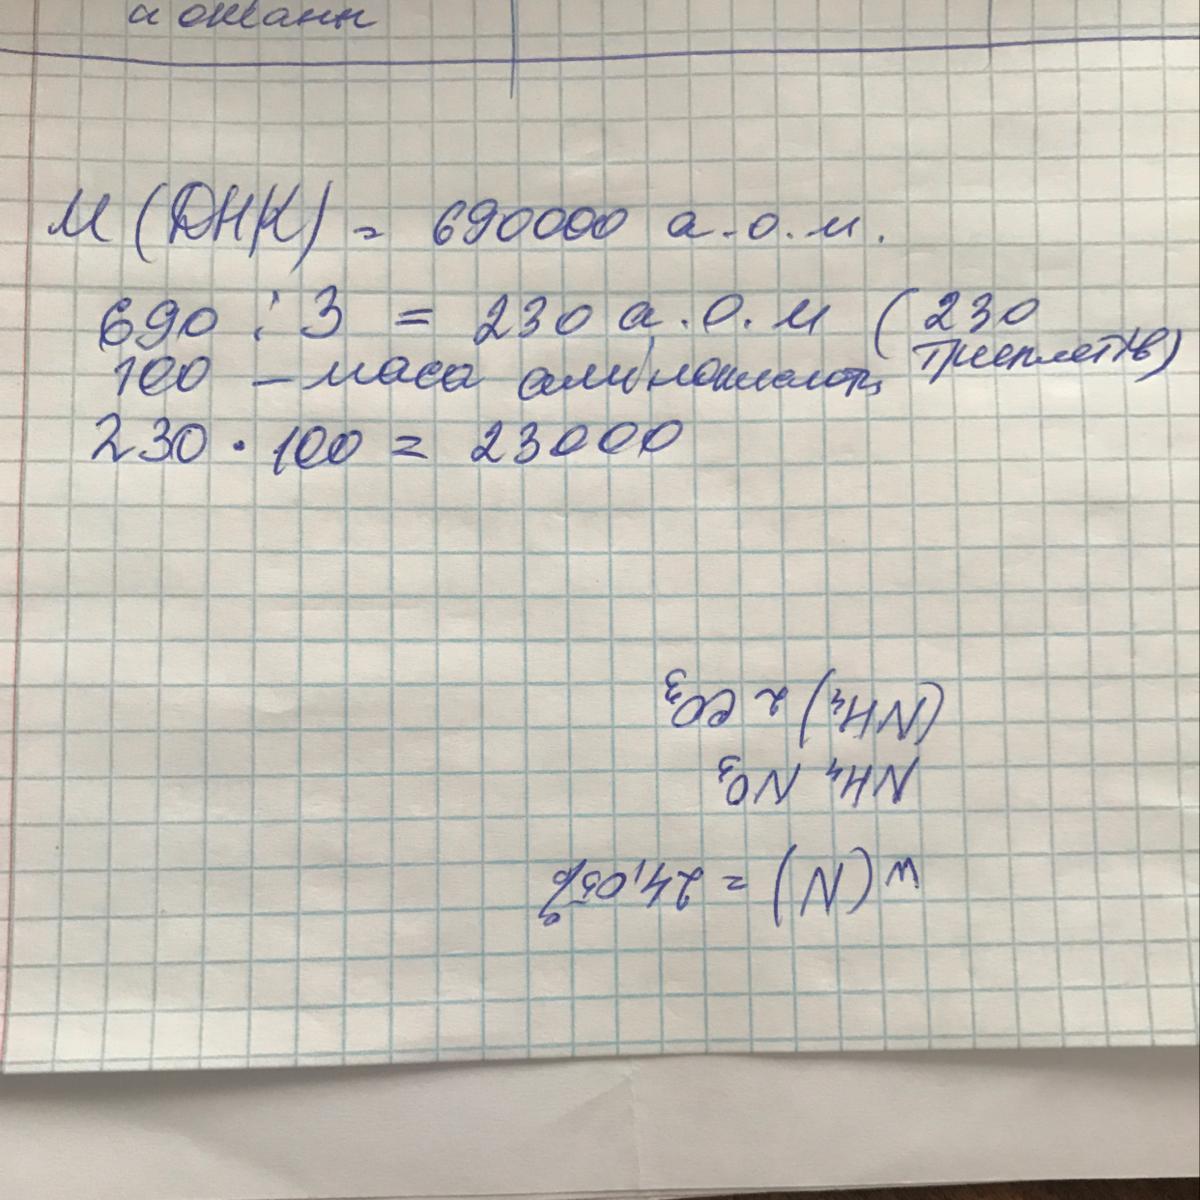 а океани
M (ДНК) = 690000 а.о.м.
690 : 3 = 230 а.о.м (230 триплетів)
100 – маса амінокислоти
230 · 100 = 23000
(NH4)2CO3
NH4NO3
w(N) = 24,05%